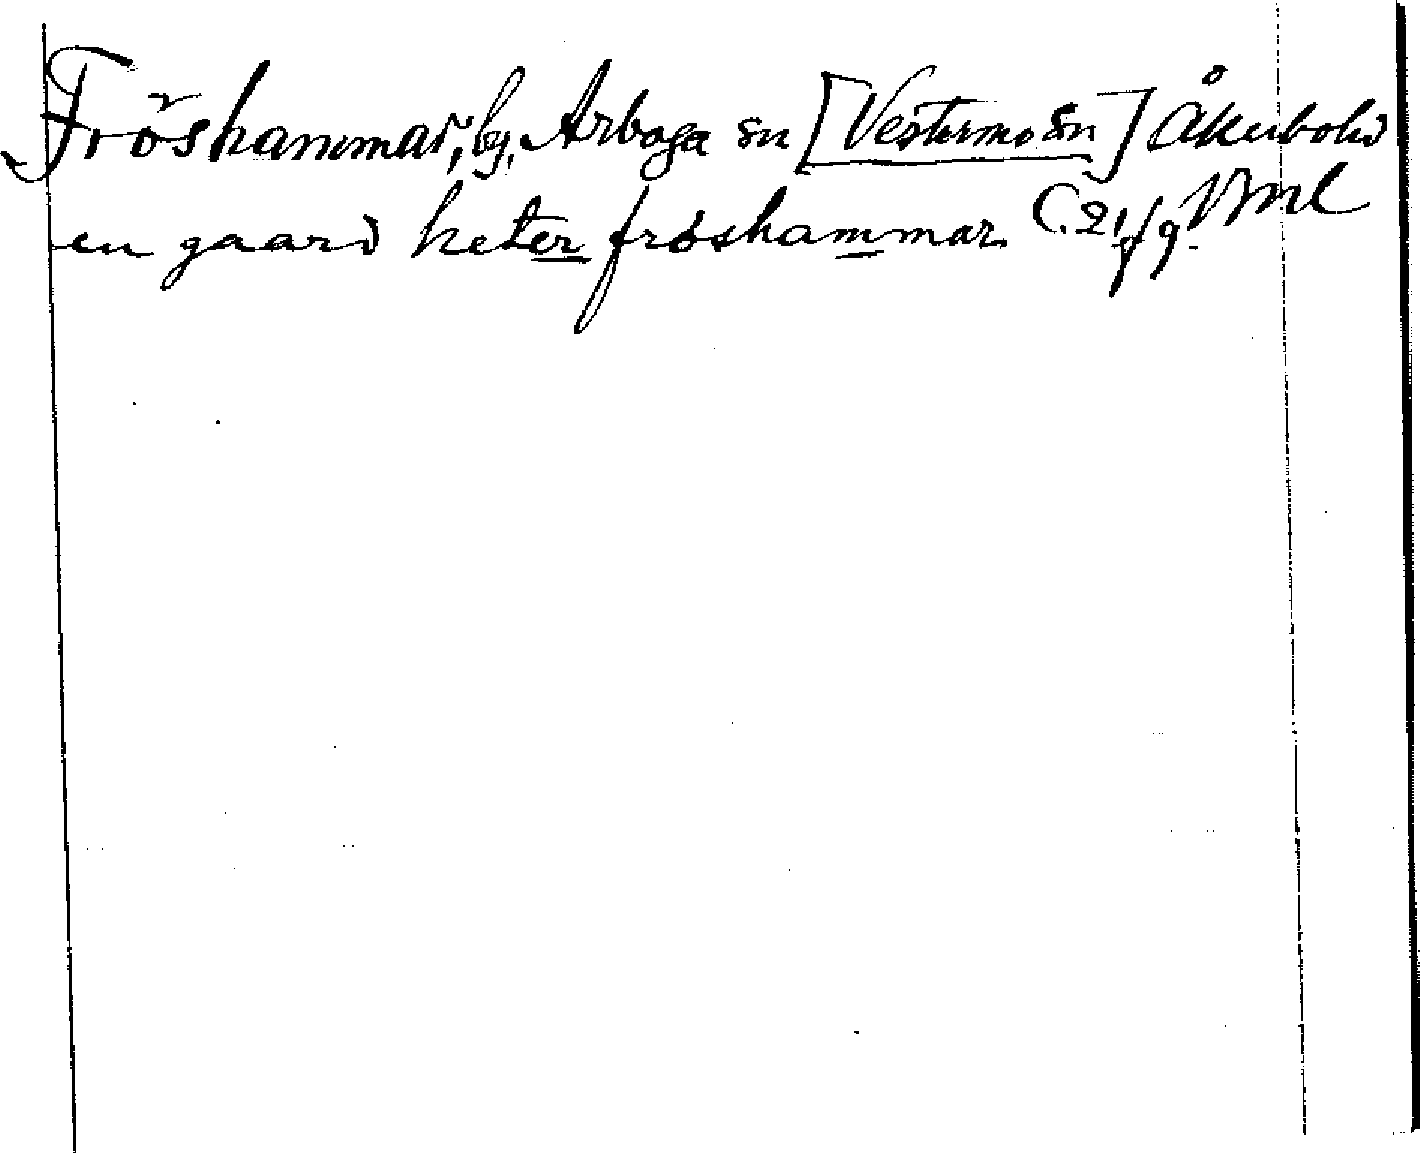 Fröshammar, by, Arboga sn [Vestermo sn] Åkerbo hd
Vml
en gaard heter frøshammar. C. 21 f 9.